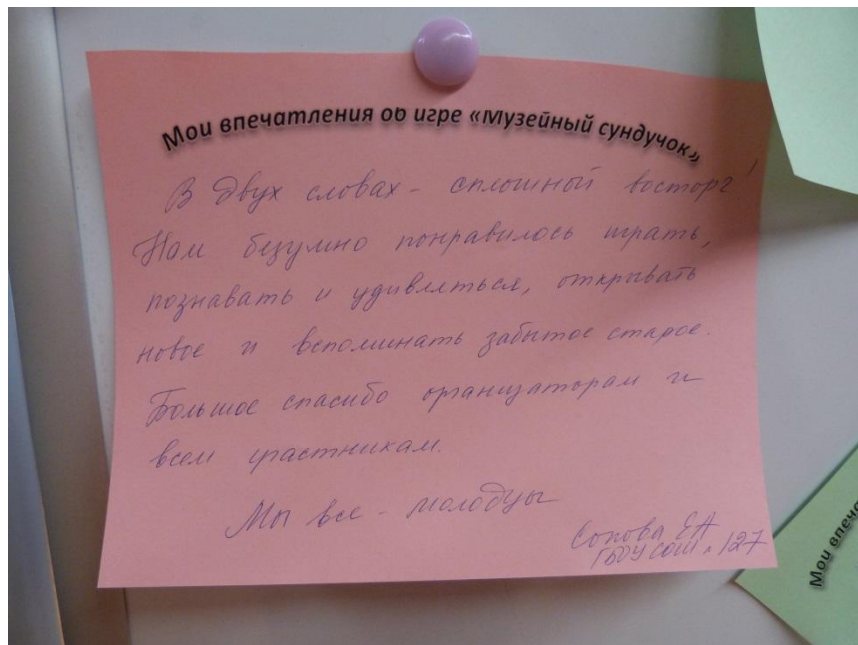 Мои впечатления об игре «Музейный сундучок»
В двух словах - сплошной восторг!
Нам безумно понравилось играть,
познавать и удивляться, открывать
новое и вспоминать забытое старое.
Большое спасибо организаторам и
всем участникам.
Мы все - молодцы
Сопова ЕА
ГБОУ СОШ № 127
Мои впеча